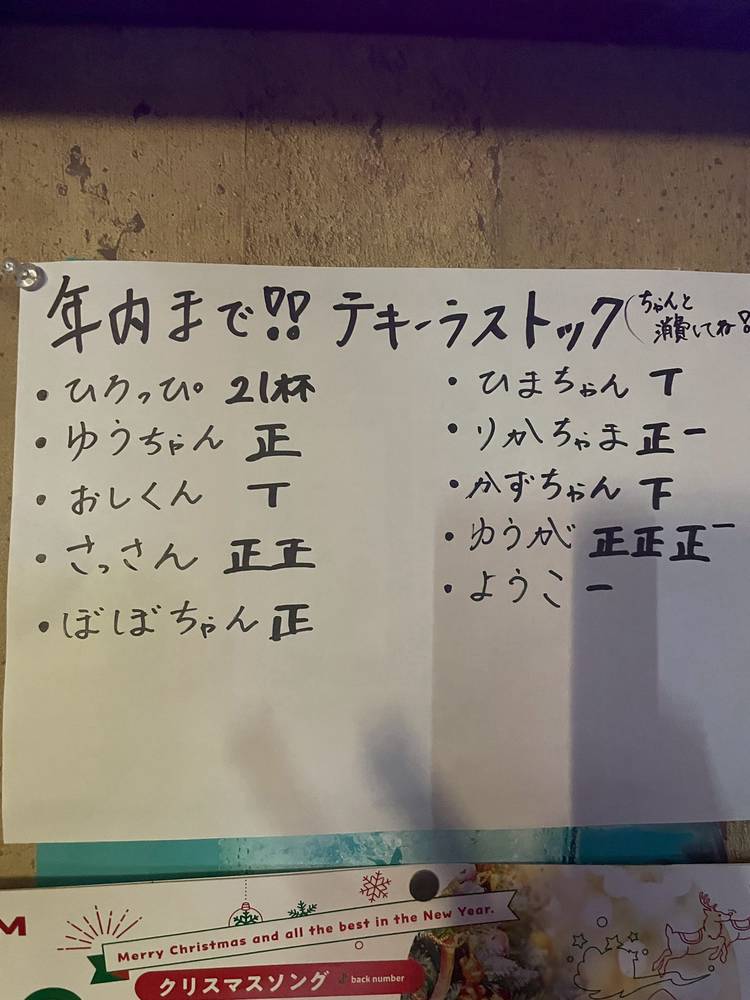 年内まで!! テキーラストック(ちゃんと
消費してね!
・ひろっぴ。 21杯
・ゆうちゃん 正
・おしくん T
・さっさん 正正
・ぼぼちゃん 正
・ひまちゃん T
・りかちゃま 正一
・かずちゃん 下
・ゆうが 正正正一
・ようこ 一
M
Merry Christmas and all the best in the New Year.
クリスマスソング ♪ back number